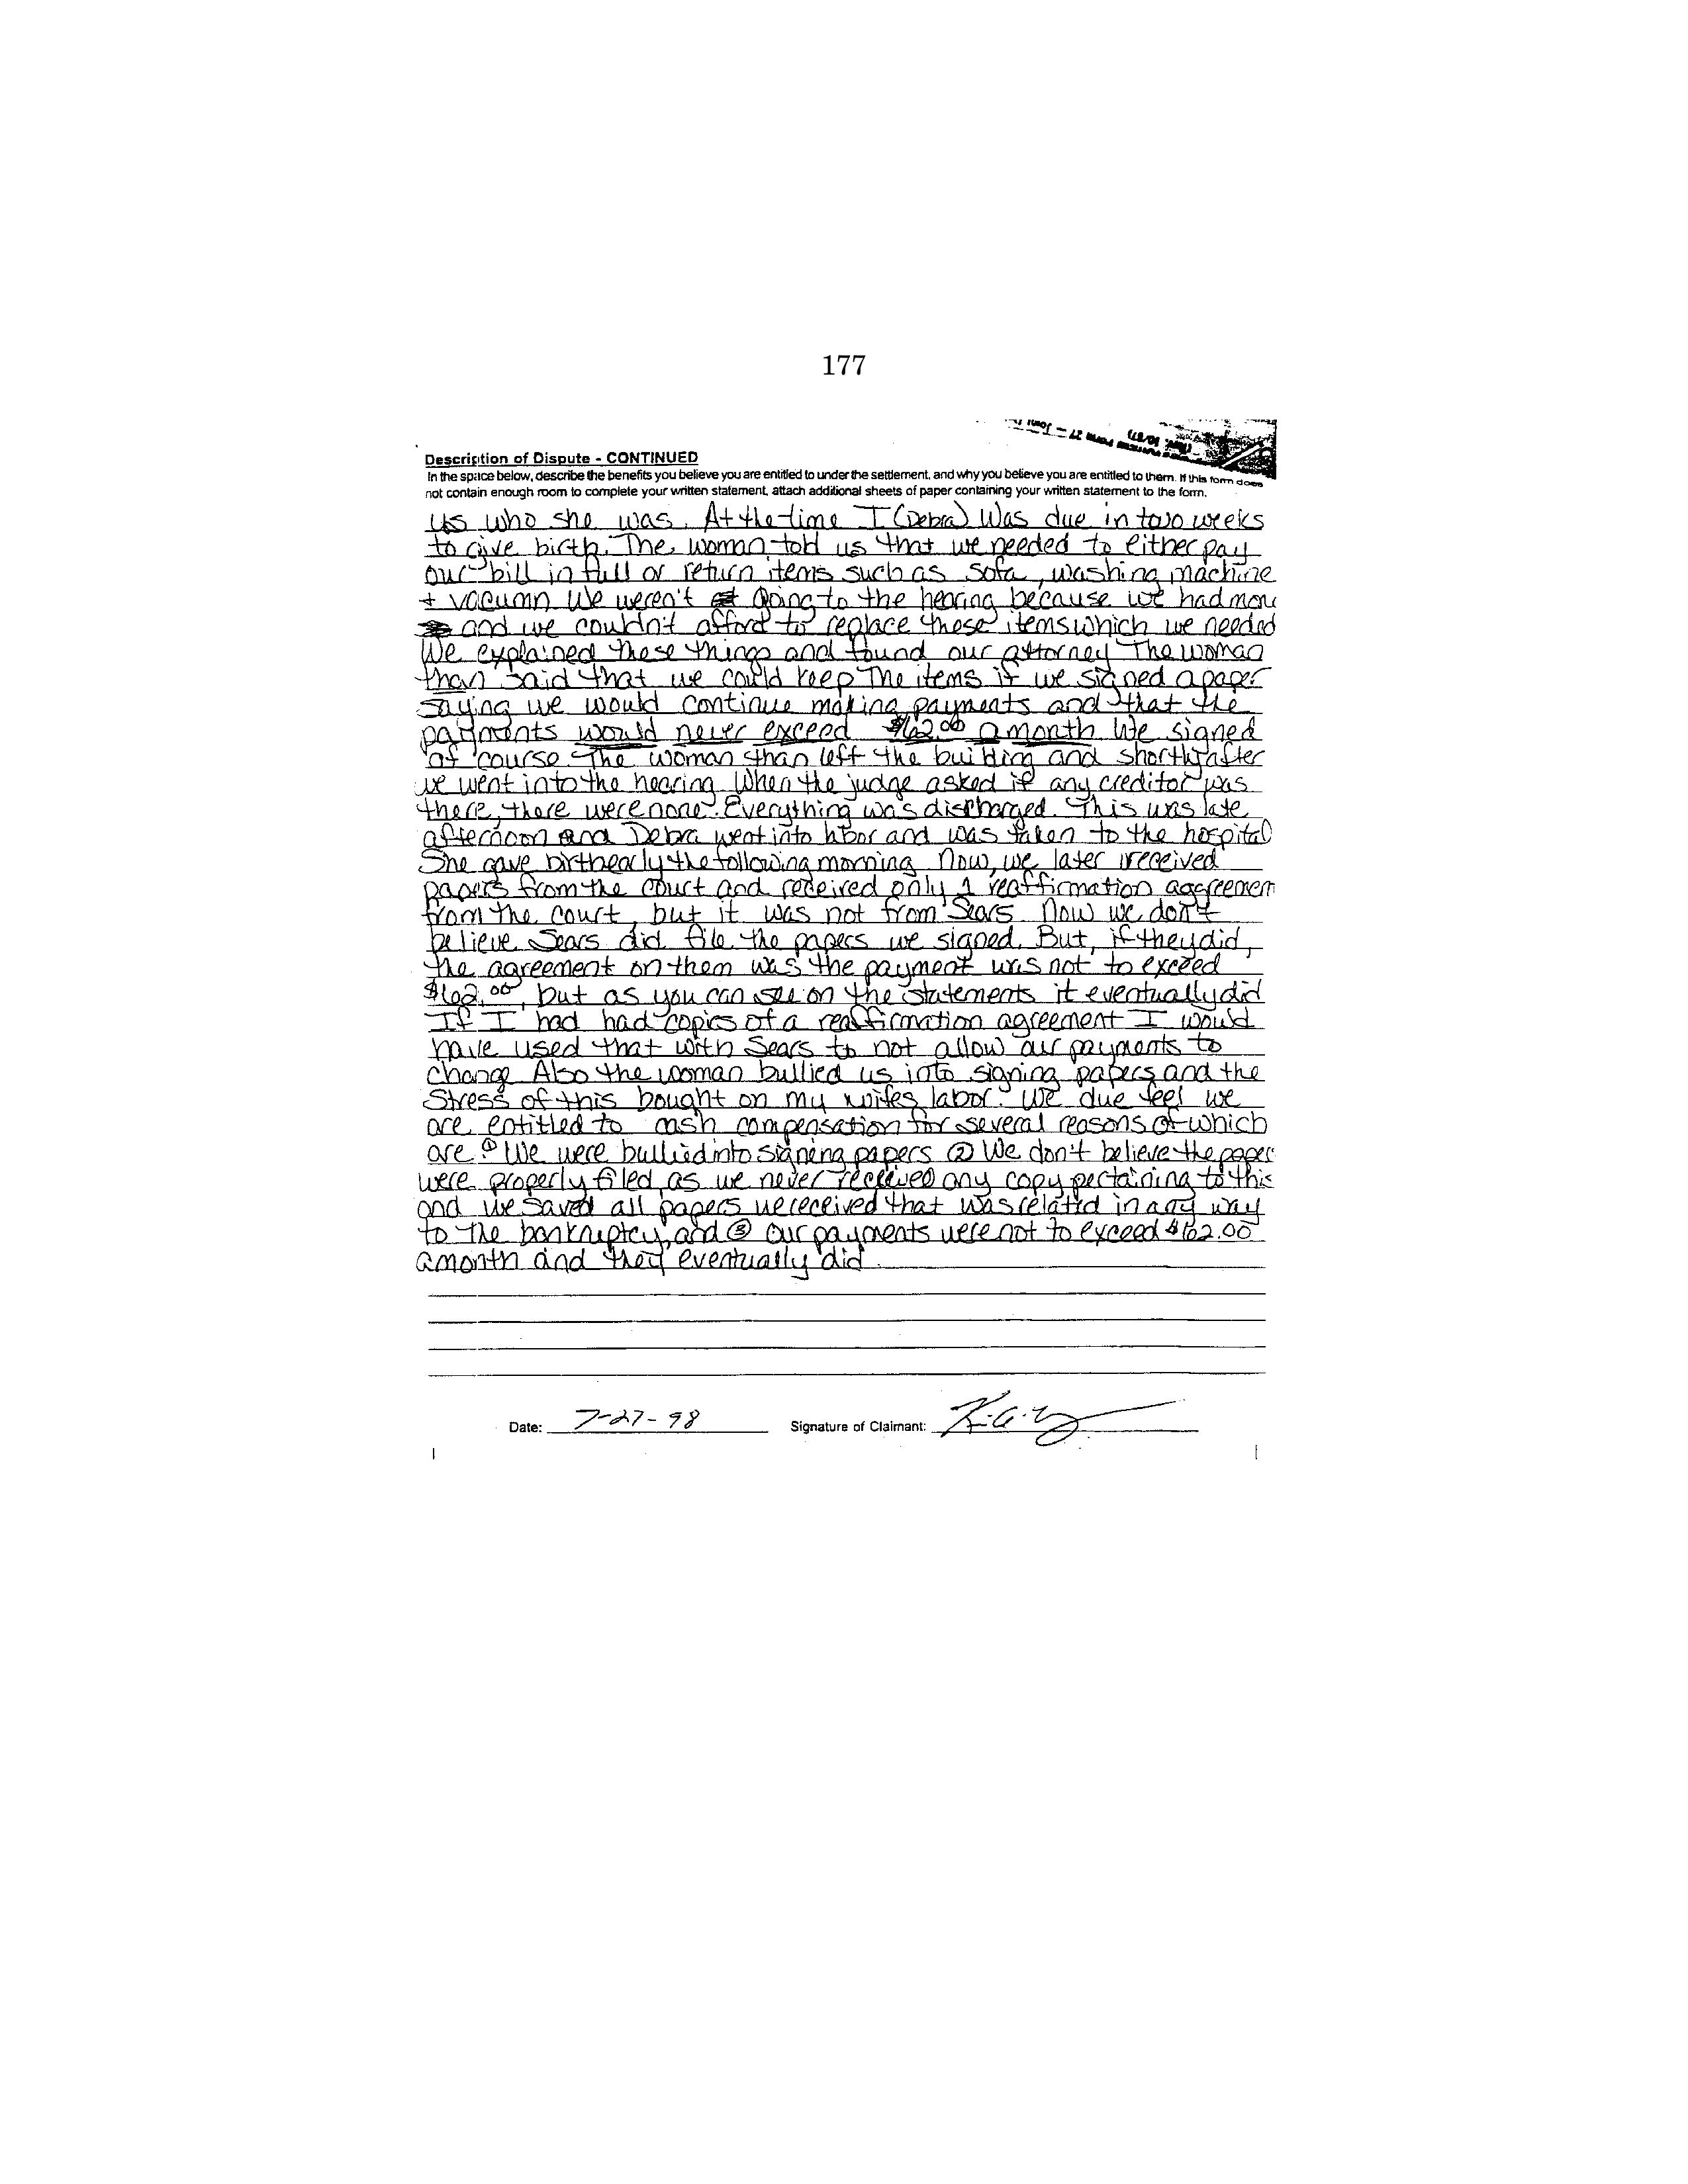 177
Description of Dispute - CONTINUED
In the space below, describe the benefits you believe you are entitled to under the settlement, and why you believe you are entitled to them. If this form does
not contain enough room to complete your written statement, attach additional sheets of paper containing your written statement to the form.
us who she was. At the time I (Debra) was due in two weeks
to give birth. The woman told us that we needed to either pay
our bill in full or return items such as sofa, washing machine
+ vacumn We weren't going to the hearing because we had
and we couldn't afford to replace these items which we needed
We explained these things and found our attorney The woman
than said that we could keep the items if we signed a paper
saying we would continue making payments and that the
payments would never exceed $62.00 a month. We signed
of course The woman than left the building and shortly after
we went into the hearing. When the judge asked if any creditor was
there, there were none. Everything was discharged. This was late
afternoon and Debra went into labor and was taken to the hospital
She gave birth early the following morning. Now, we later received
papers from the court and received only 1 reaffirmation aggreemen
from the court, but it was not from Sears. Now we don't
believe Sears did file the papers we signed. But, if they did,
the agreement on them was the payment was not to exceed
$62.00, but as you can see on the statements it eventually did
If I had had copies of a reaffirmation agreement I would
have used that with Sears to not allow our payments to
change. Also the woman bullied us into signing papers and the
stress of this bought on my wifes labor. We due feel we
are entitled to cash compensation for several reasons of which
are ① We were bullied into signing papers ② We don't believe the paper
were properly filed as we never received any copy pertaining to this
and we saved all papers we received that was related in any way
to the bankruptcy, and ③ our payments were not to exceed $62.00
a month and they eventually did
Date: 7-27-98 Signature of Claimant: